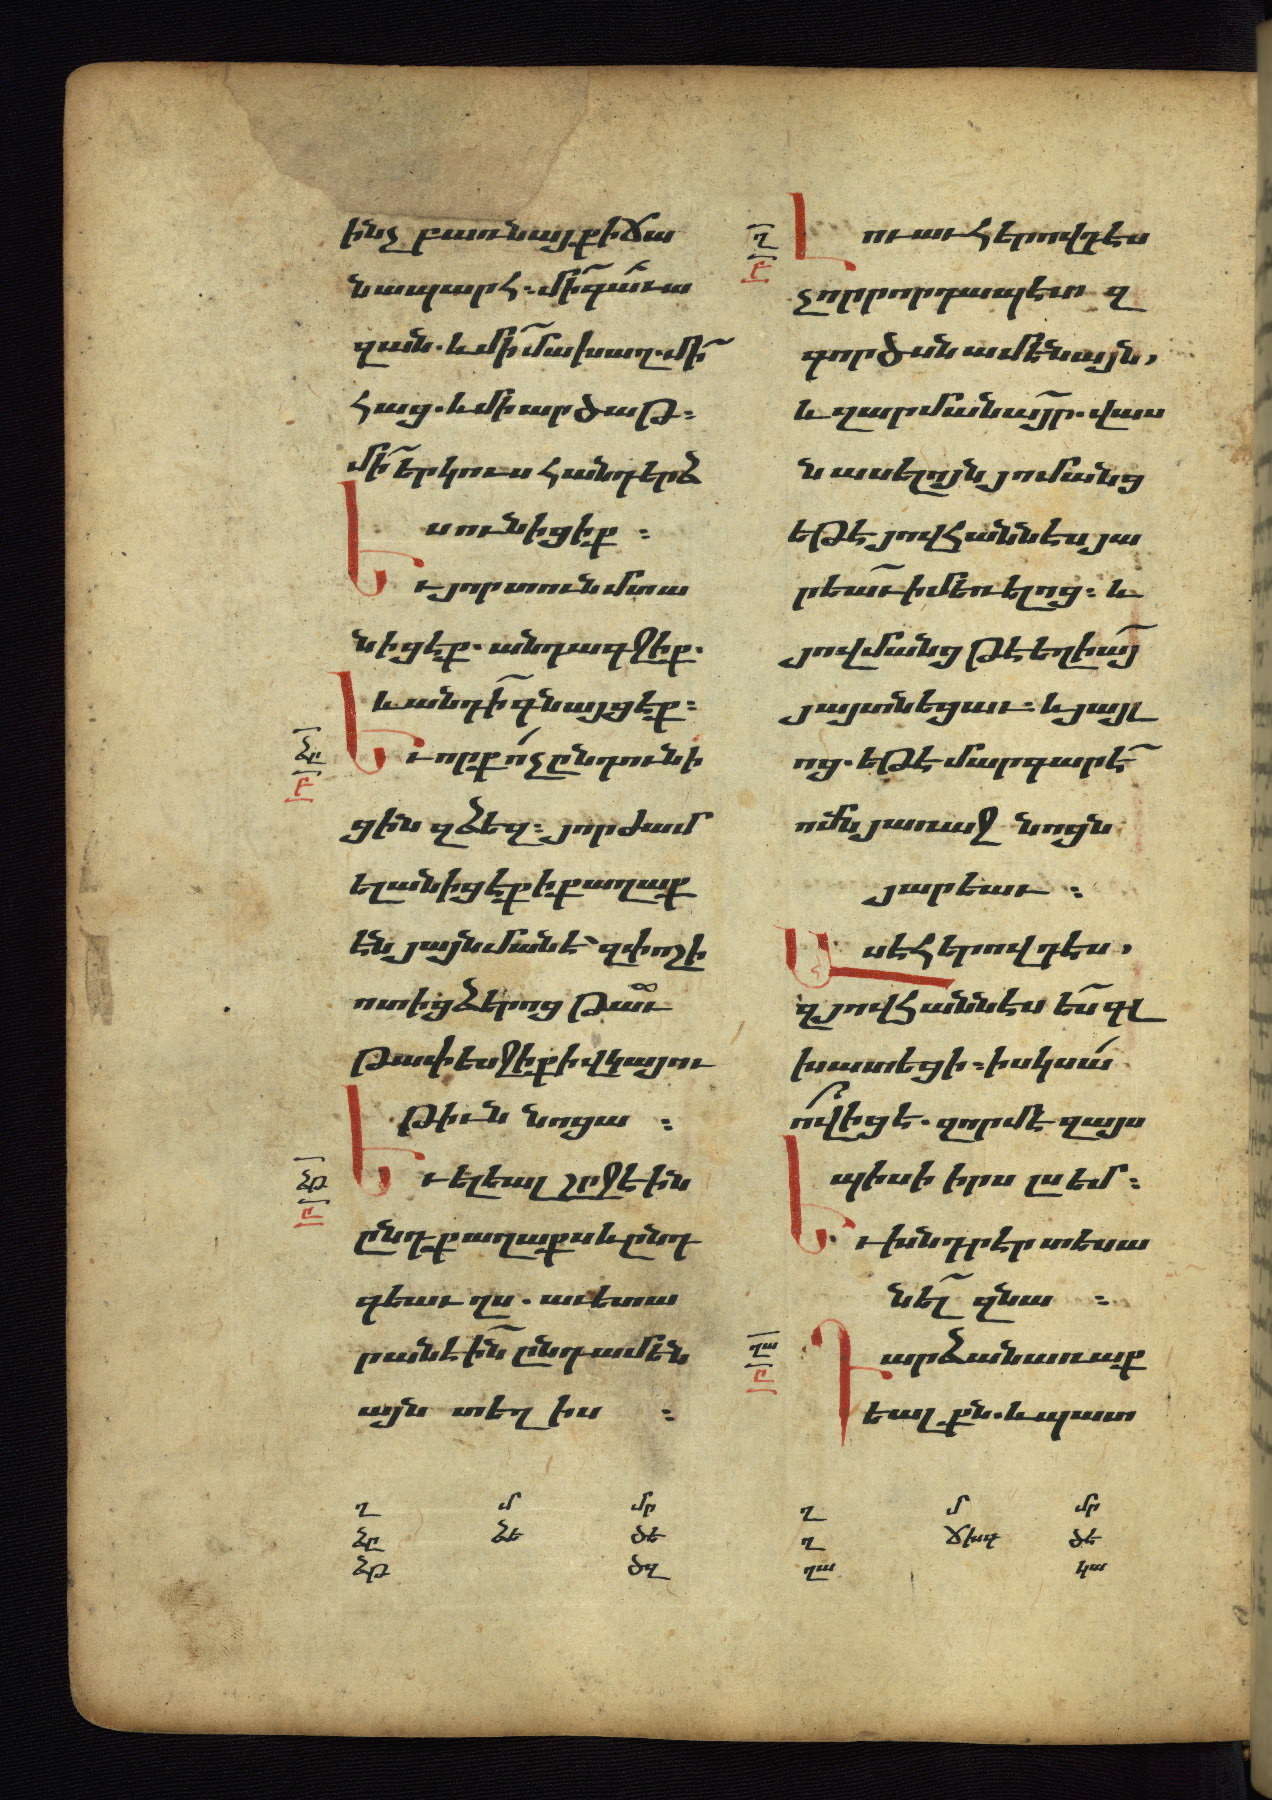 ինչ բառնայք ի ճա
նապարհ։ մի գաւա
զան. և մի մախաղ. մի
հաց. և մի արծաթ։
մի երկուս հանդերձ
ս ունիցիք։
Եւ յոր տուն մտա
նիցէք. անդ ագջիք.
և անդի գնայցէք։
ՁԸ
Բ
Եւ որք ոչ ընդունի
ցին զձեզ։ յորժամ
ելանիցէք ի քաղաք
էն յայնմանէ զփոշի
ոտից ձերոց թաւ
թափեսջիք ի վկայու
թիւն նոցա։
ՁԹ
Ը
Եւ ելեալ շրջէին
ընդ քաղաքս և ընդ
գեաւղս. աւետա
րանէին ընդ ամեն
այն տեղիս։
ղ մ մր
ձը ձե ծե
ձթ ծզ
Ղ
Բ
Լուաւ հերովդէս
չորրորդապետ զ
գործսն ամենայն,
և զարմանայր. վաս
ն ասելոյն յոմանց
եթէ յովհաննէս յա
րեաւ ի մեռելոց։ և
յովմանց թէ եղիայ
յայտնեցաւ։ և յայլ
ոց. եթէ մարգարէ
ոմն յառաջնոցն
յարեաւ։
Ասէ հերովդէս,
զյովհաննէս ես գլ
խատեցի։ իսկ սա
ով իցե. զորմէ զայս
պիսի իրս լսեմ։
Եւ խնդրէր տեսա
նել զնա։
ՂԱ
Ը
Դարձան առաք
եալքն. և պատ
ղ մ մր
ղ ճխգ ծե
ղա կա